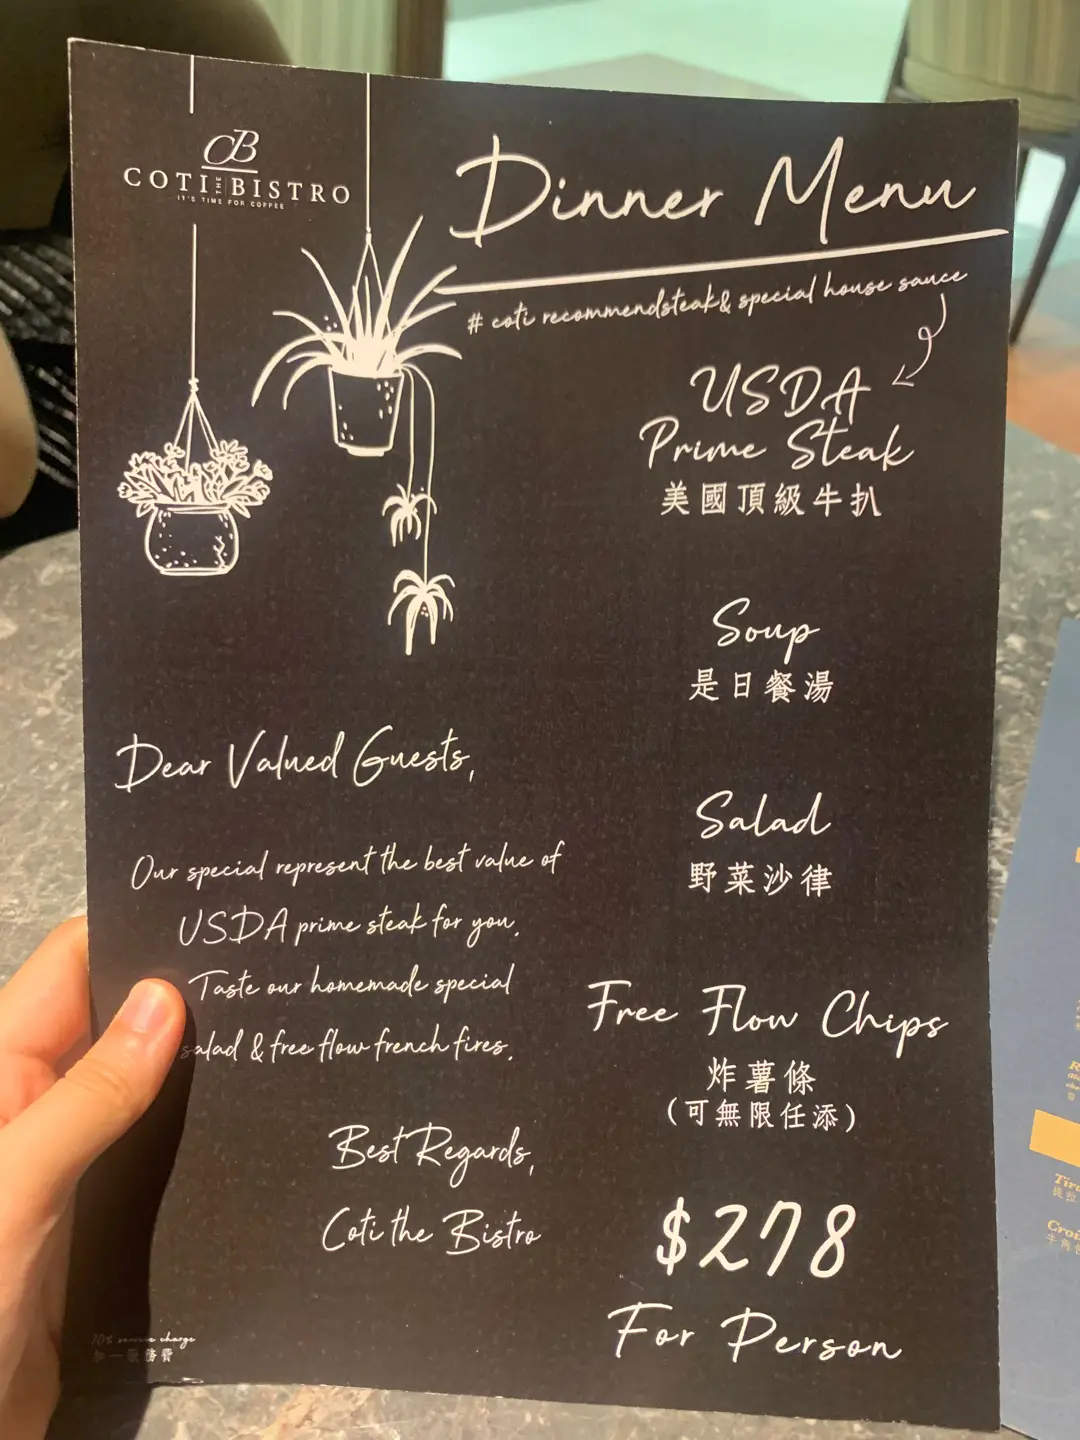 CB
COTI THE BISTRO
IT'S TIME FOR COFFEE
Dinner Menu
# coti recommendsteak& special house sauce
USDA
Prime Steak
美國頂級牛扒
Soup
是日餐湯
Salad
野菜沙律
Free Flow Chips
炸薯條
(可無限任添)
$278
For Person
Dear Valued Guests,
Our special represent the best value of
USDA prime steak for you.
Taste our homemade special
salad & free flow french fires.
Best Regards,
Coti the Bistro
10% service charge
加一服務費